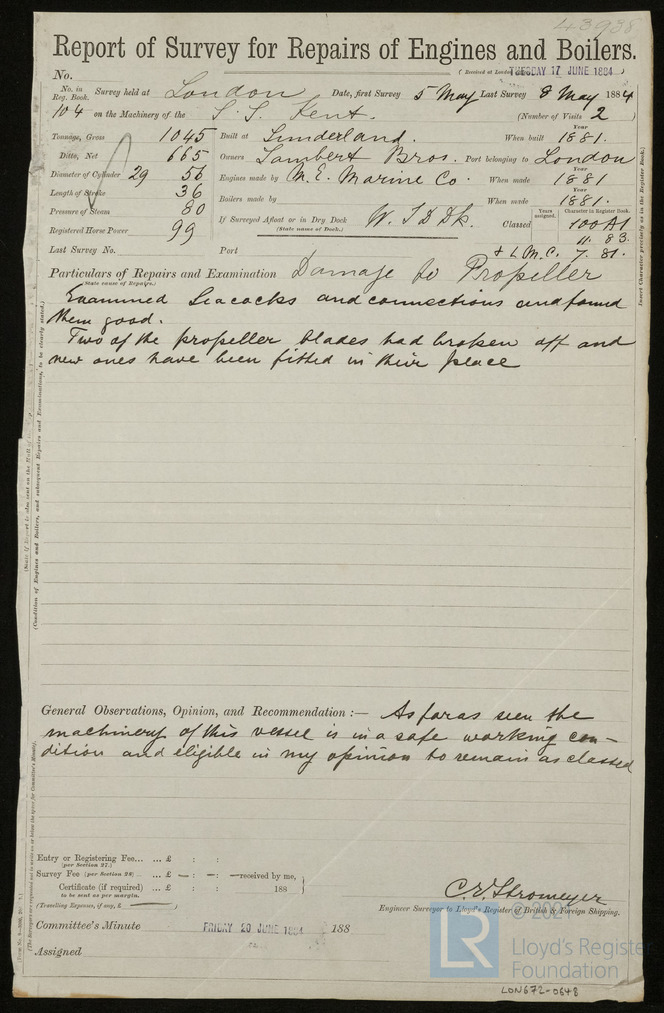 43938
Report of Survey for Repairs of Engines and Boilers.
No. (Received at London TUESDAY 17 JUNE 1884)
No. in Reg. Book. Survey held at London Date, first Survey 5 May Last Survey 8 May 1884
104 on the Machinery of the S. S. Kent. (Number of Visits 2)
Tonnage, Gross 1045 Built at Sunderland. When built Year 1881.
Ditto, Net 665 Owners Lambert Bros. Port belonging to London
Diameter of Cylinder 29 56 Engines made by N. E. Marine Co. When made Year 1881
Length of Stroke 36 Boilers made by When made Year 1881.
Pressure of Steam 80 If Surveyed Afloat or in Dry Dock W. I D Dk. Classed Years assigned. Character in Register Book. 100 A1
(State name of Dock.)
Registered Horse Power 99 11. 83.
Last Survey No. Port + L. M. C. 7. 81.
Insert Character precisely as in the Register Book.
Particulars of Repairs and Examination Damage to Propeller
(State cause of Repairs.)
Examined Seacocks and connections and found
them good.
Two of the propeller blades had broken off and
new ones have been fitted in their place
(Condition of Engines and Boilers, and subsequent Repairs and Examinations, to be clearly stated.)
General Observations, Opinion, and Recommendation :— As far as seen the
machinery of this vessel is in a safe working con-
dition and eligible in my opinion to remain as classed
Entry or Registering Fee... ... £ : :
(per Section 27.)
Survey Fee (per Section 28) ... £ — : — : — received by me,
Certificate (if required) ... £ : : 188
to be sent as per margin.
(Travelling Expenses, if any, £ —)
C. E. Stromeyer
Engineer Surveyor to Lloyd's Register of British & Foreign Shipping.
Committee's Minute FRIDAY 20 JUNE 1884 188
Assigned
LR © 2021
Lloyd's Register
Foundation
LON672-0648